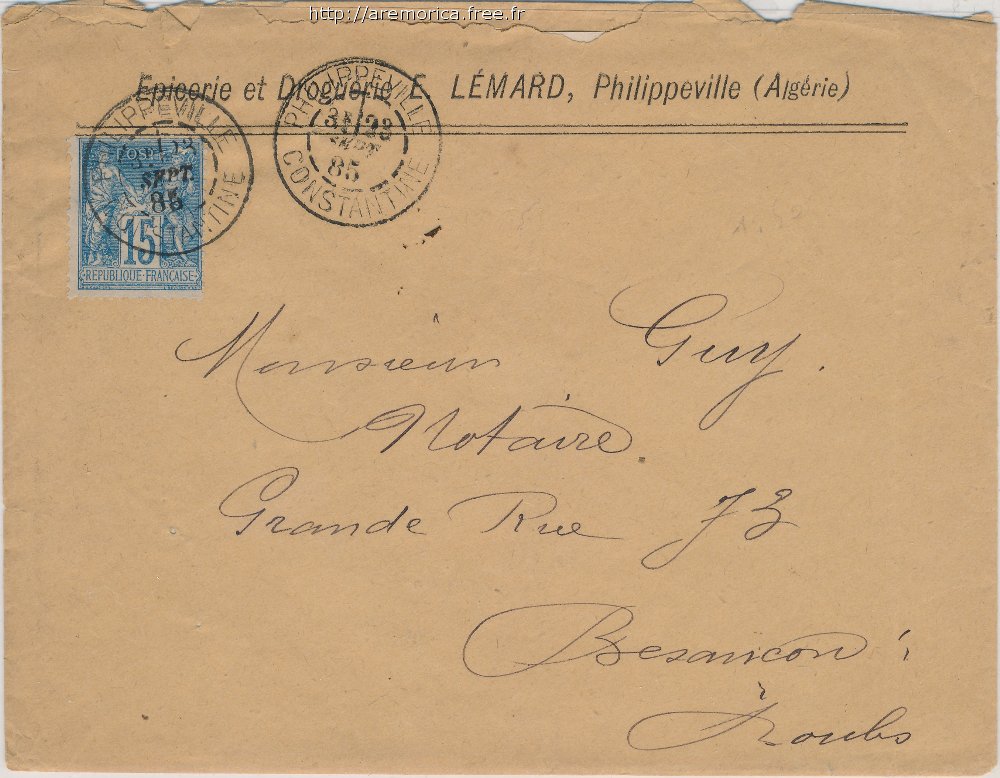 http://aremorica.free.fr
Epicerie et Droguerie E. LÉMARD, Philippeville (Algérie)
PHILIPPEVILLE
23
SEPT.
85
CONSTANTINE
PHILIPPEVILLE
23
SEPT
85
CONSTANTINE
POSTES
15
REPUBLIQUE FRANÇAISE
Monsieur Guy.
Notaire.
Grande Rue 73
Besancon
Doubs